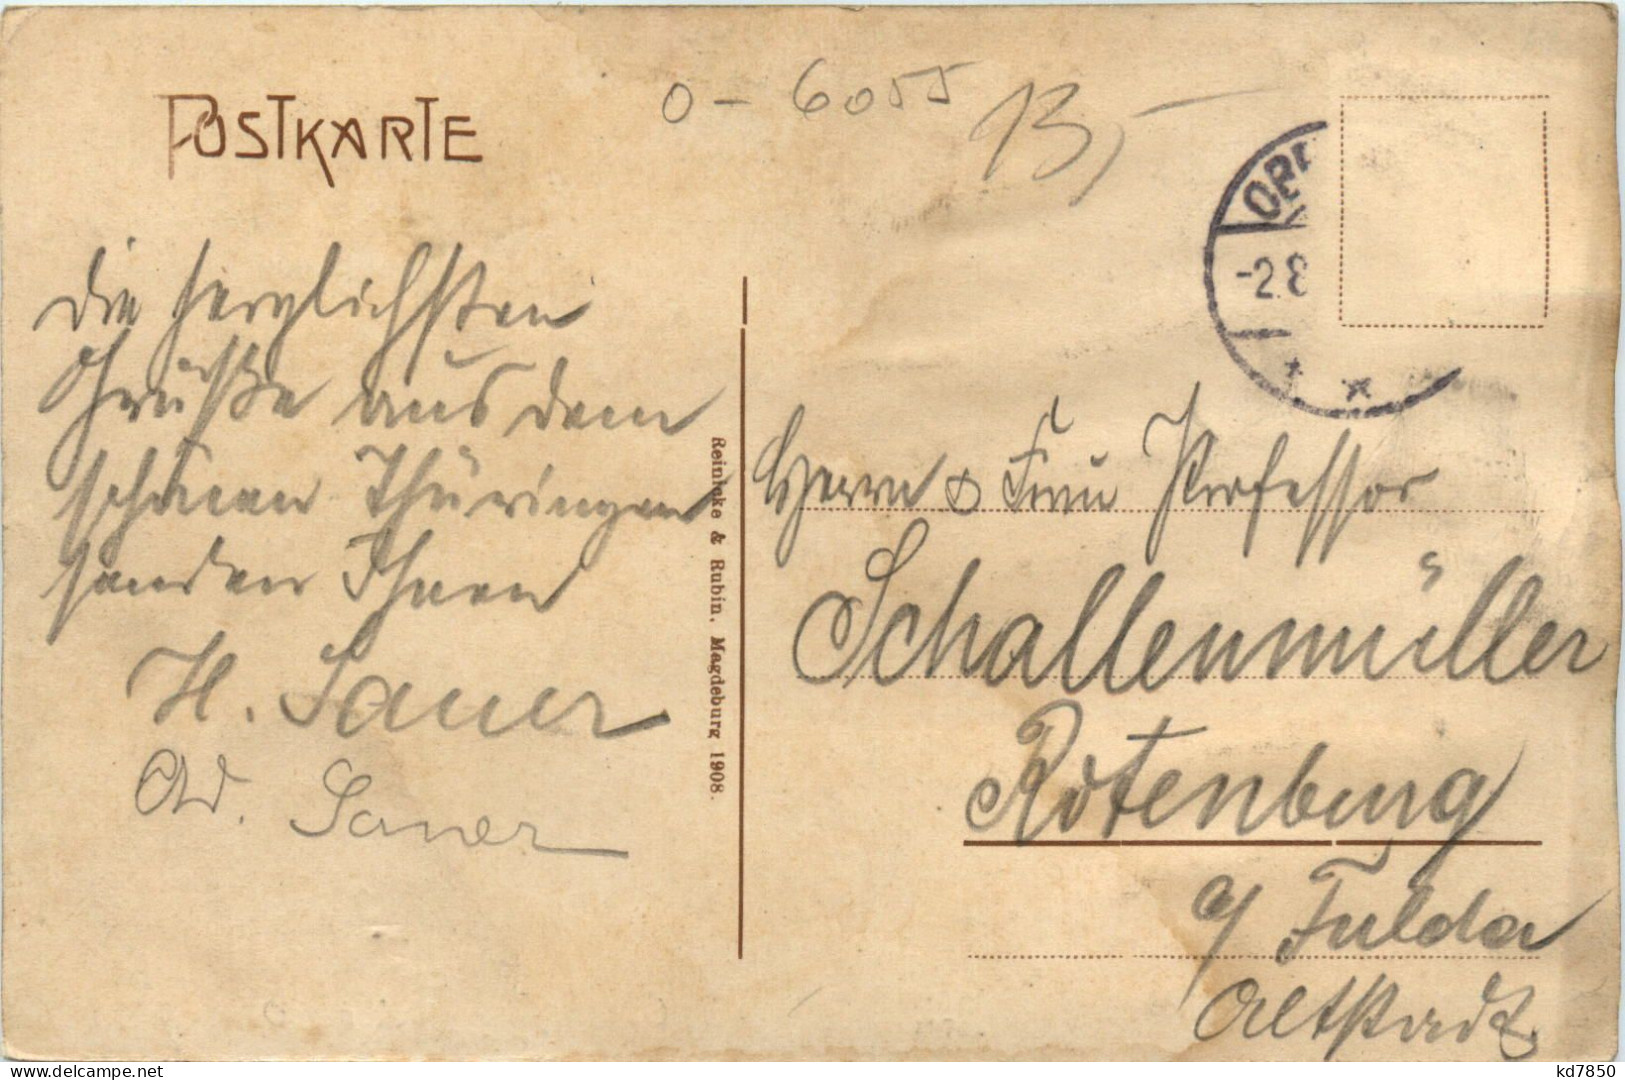 POSTKARTE
0 - 6055
13,-
OBE
-2.8
die herzlichsten
Grüße aus dem
schönen Thüringen
senden Ihnen
H. Sauer
Ad. Sauer
Reinicke & Rubin. Magdeburg 1908.
Herrn & Frau Professor
Schallenmüller
Rotenburg
a/ Fulda
Altstadt.
kd7850